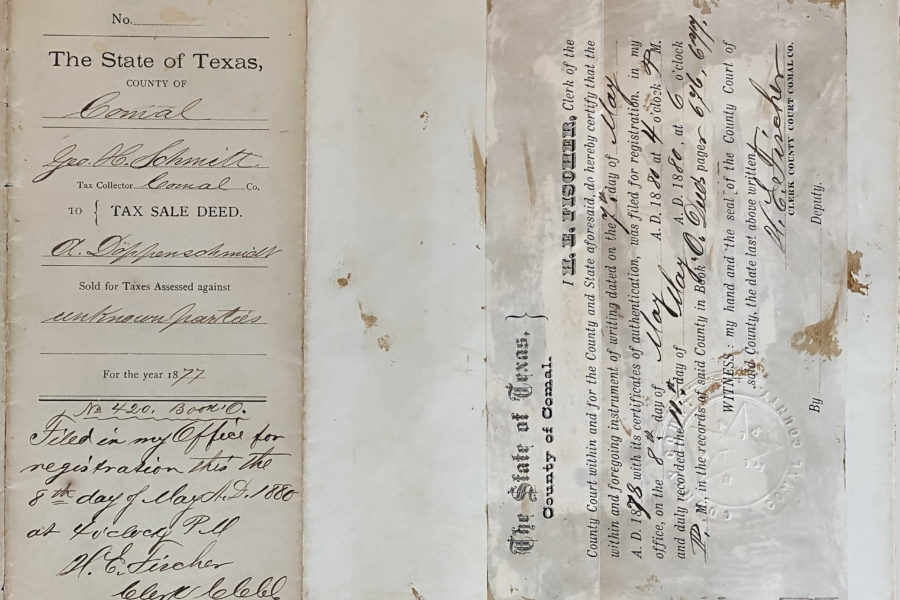 No.
The State of Texas,
COUNTY OF
Comal
Geo. H. Schmitt
Tax Collector Comal Co.
TO { TAX SALE DEED.
A. Döppenschmidt
Sold for Taxes Assessed against
unknown parties
For the year 1877
No 420. Book O.
Filed in my Office for
registration this the
8th day of May A.D. 1880
at 4 o'clock P.M
H. E. Fischer
Clerk
The State of Texas, }
County of Comal.
I H. E. FISCHER, Clerk of the
County Court within and for the County and State aforesaid, do hereby certify that the
within and foregoing instrument of writing dated on the 7th day of May
A. D. 1878 with its certificates of authentication, was filed for registration, in my
office, on the 8th day of May A. D. 1880 at 4 o'clock P M.
and duly recorded the day of May A. D. 1880, at 6 o'clock
P. M., in the records of said County in Book O. pages 676, 677.
WITNESS: my hand and the seal of the County Court of
said County, the date last above written.
H. E. Fischer
CLERK COUNTY COURT COMAL CO.
By Deputy.